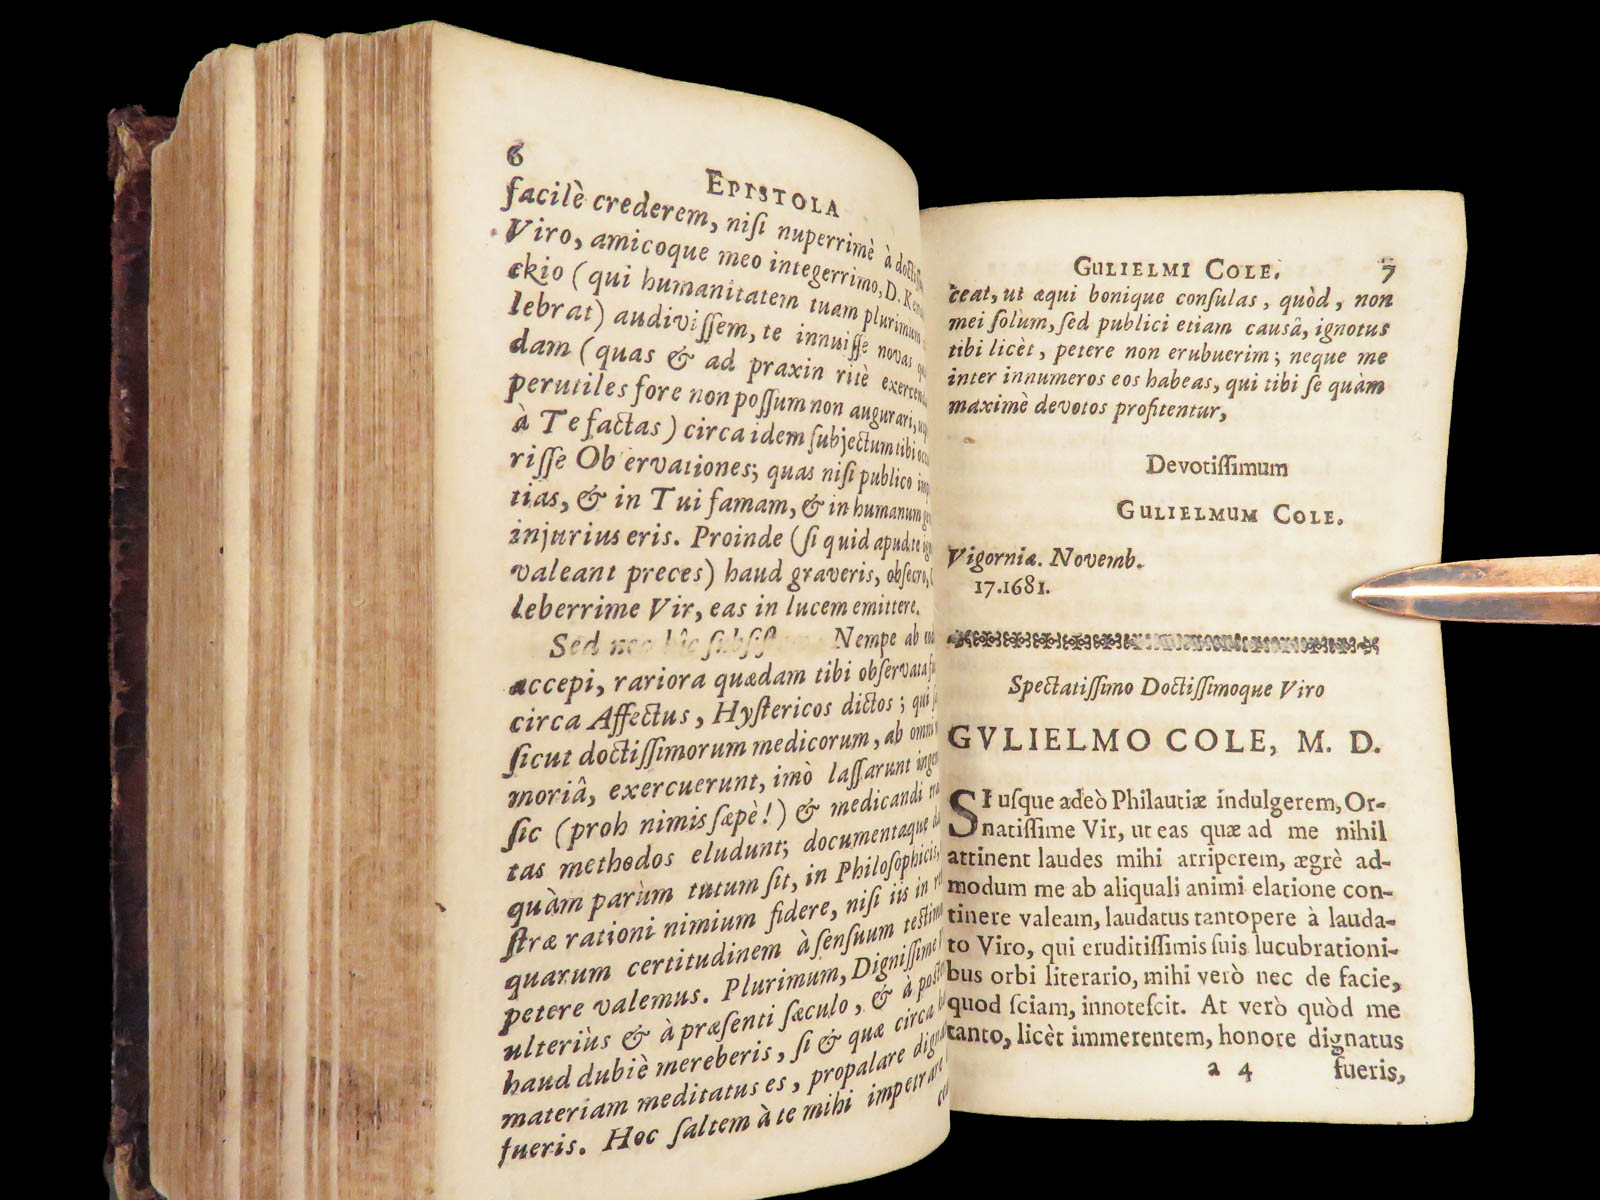 6
EPISTOLA
facilè crederem, niſi nuperrimè à
Viro, amicoque meo integerrimo, D.
ckio (qui humanitatem tuam plurimum
lebrat) audiviſſem, te innuiſſe novas
dam (quas & ad praxin ritè
perutiles fore non poſſum non augurari,
à Te factas) circa idem ſubjectum tibi
riſſe Ob ervationes; quas niſi publico
tias, & in Tui famam, & in humanum
injurius eris. Proinde (ſi quid apud te
valeant preces) haud graveris, obſecro,
leberrime Vir, eas in lucem emittere.
Sed nec hîc Nempe ab
accepi, rariora quædam tibi obſervata
circa Affectus, Hyſtericos dictos; qui
ſicut doctiſſimorum medicorum, ab omni
moriâ, exercuerunt, imò laſſarunt
ſic (proh nimis ſæpè!) & medicandi
tas methodos eludunt; documentaque
quàm parùm tutum ſit, in Philoſophicis,
ſtræ rationi nimium fidere, niſi iis in
quarum certitudinem à ſenſuum
petere valemus. Plurimum, Digniſſime
ulteriùs & à præſenti ſæculo, & à
haud dubiè mereberis, ſi & quæ circa
materiam meditatus es, propalare
fueris. Hoc ſaltem à te mihi impetrare
GULIELMI COLE. 7
ceat, ut æqui bonique conſulas, quòd, non
mei ſolum, ſed publici etiam causâ, ignotus
tibi licèt, petere non erubuerim; neque me
inter innumeros eos habeas, qui tibi ſe quàm
maximè devotos profitentur,
Devotiſſimum
GULIELMUM COLE.
Vigorniæ. Novemb.
17.1681.
Spectatiſſimo Doctiſſimoque Viro
GVLIELMO COLE, M. D.
SI uſque adeò Philautiæ indulgerem, Or-
natiſſime Vir, ut eas quæ ad me nihil
attinent laudes mihi arriperem, ægrè ad-
modum me ab aliquali animi elatione con-
tinere valeam, laudatus tantopere à lauda-
to Viro, qui eruditiſſimis ſuis lucubrationi-
bus orbi literario, mihi verò nec de facie,
quod ſciam, innoteſcit. At verò quòd me
tanto, licèt immerentem, honore dignatus
a 4 fueris,